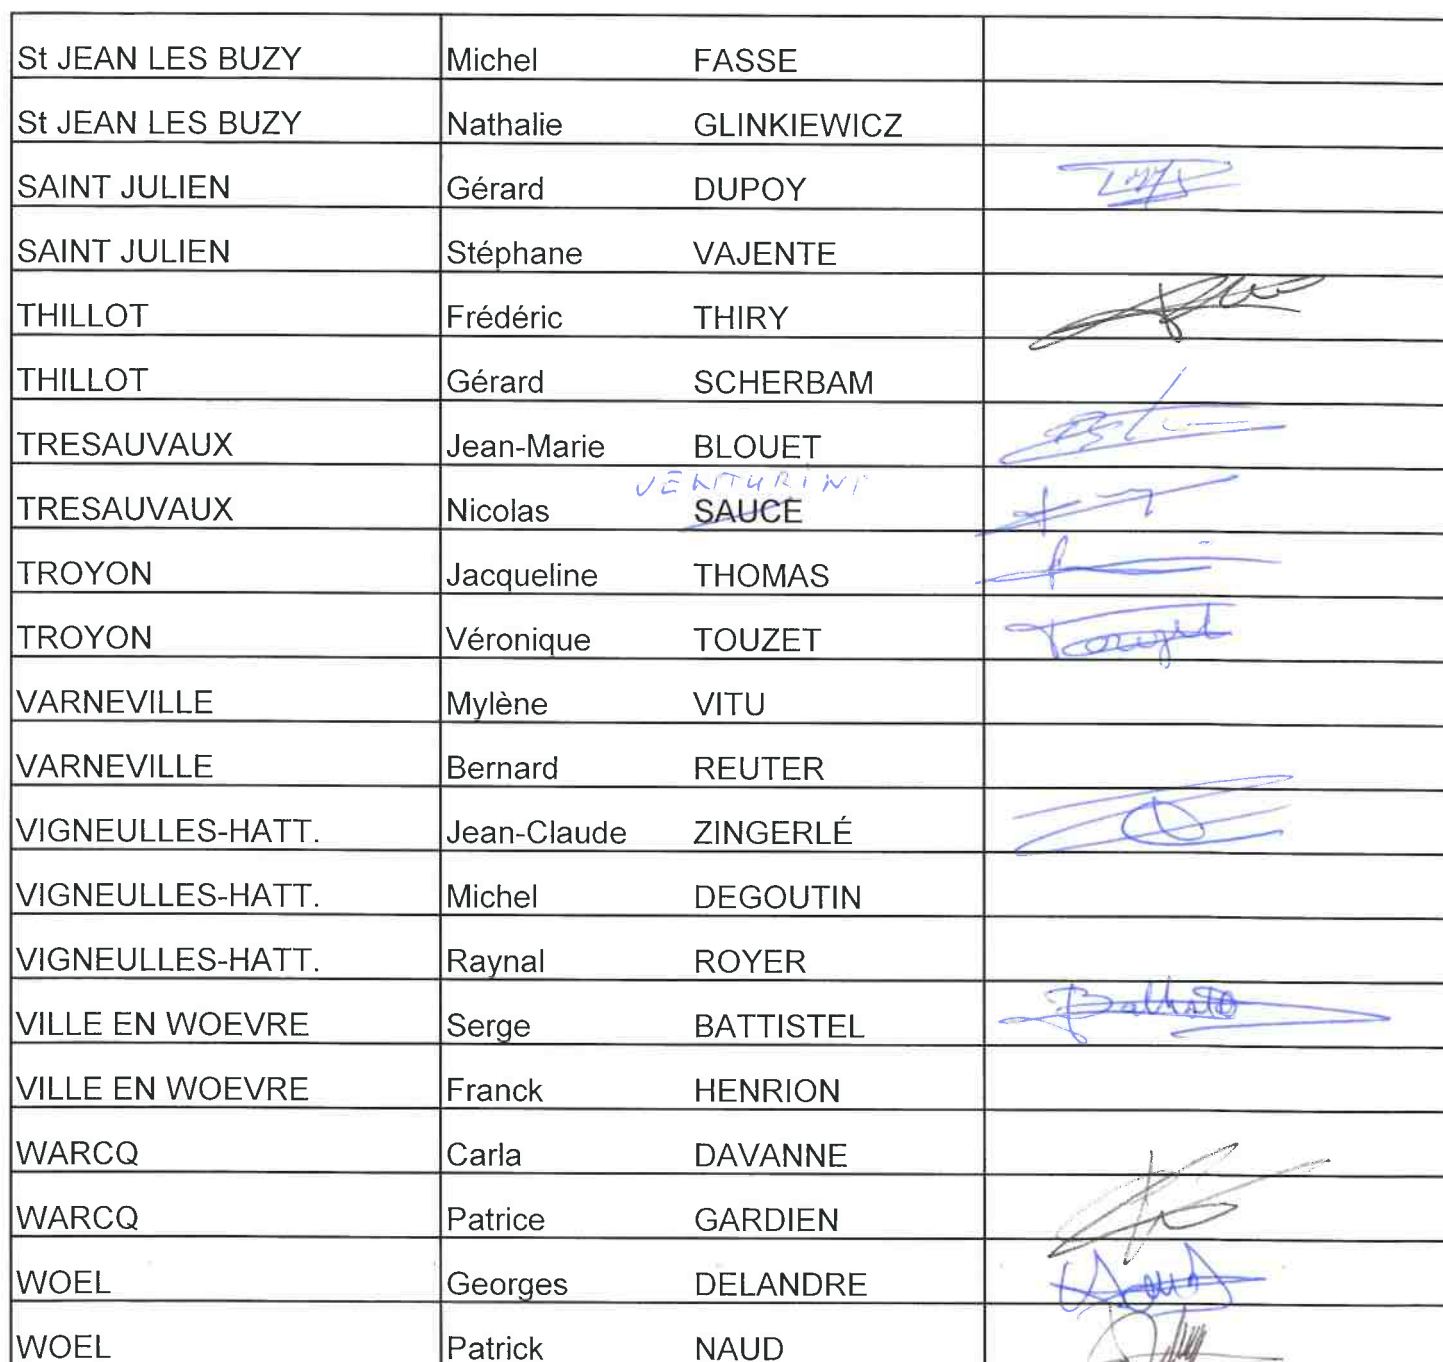 St JEAN LES BUZY Michel FASSE
St JEAN LES BUZY Nathalie GLINKIEWICZ
SAINT JULIEN Gérard DUPOY
SAINT JULIEN Stéphane VAJENTE
THILLOT Frédéric THIRY
THILLOT Gérard SCHERBAM
TRESAUVAUX Jean-Marie BLOUET
VENTURINI
TRESAUVAUX Nicolas SAUCE
TROYON Jacqueline THOMAS
TROYON Véronique TOUZET Touzet
VARNEVILLE Mylène VITU
VARNEVILLE Bernard REUTER
VIGNEULLES-HATT. Jean-Claude ZINGERLÉ
VIGNEULLES-HATT. Michel DEGOUTIN
VIGNEULLES-HATT. Raynal ROYER
VILLE EN WOEVRE Serge BATTISTEL
VILLE EN WOEVRE Franck HENRION
WARCQ Carla DAVANNE
WARCQ Patrice GARDIEN
WOEL Georges DELANDRE
WOEL Patrick NAUD